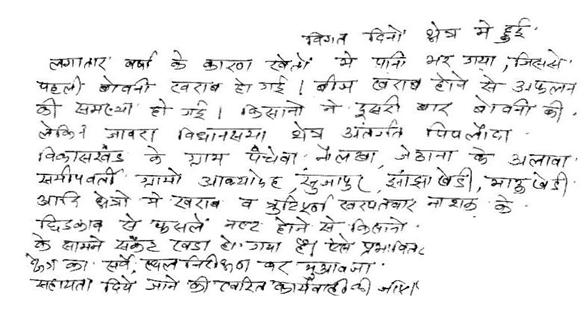 विगत दिनों क्षेत्र में हुई
लगातार वर्षा के कारण खेतों में पानी भर गया, जिससे
पहली बोवनी खराब हो गई। बीज खराब होने से अफलन
की समस्या हो गई। किसानों ने दूसरी बार बोवनी की
लेकिन जावरा विधानसभा क्षेत्र अंतर्गत पिपलौदा
विकासखंड के ग्राम पंचेवा नौलखा, जेठाना के अलावा
समीपवर्ती ग्रामों सुजापुर, झांझाखेडी, भाटखेडी
आदि क्षेत्रों में खराब व त्रुटिपूर्ण खरपतवार नाशक के
छिडकाव से फसलें नष्ट होने से किसानों
के सामने संकट खडा हो गया है। ऐसे प्रभावित
का सर्वे, स्थल निरीक्षण कर मुआवजा
सहायता दिये जाने की त्वरित कार्यवाही की जाए।